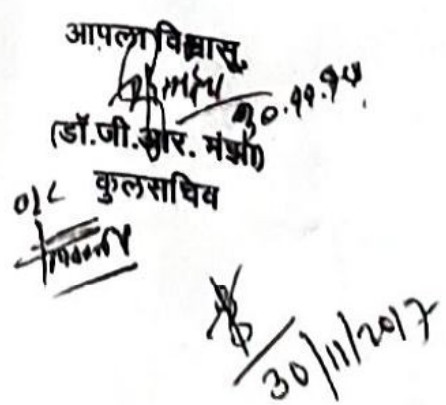 आपला विश्वासू,
३०.११.१७
(डॉ.जी.आर. मंझा)
कुलसचिव
O/C
30/11/2017